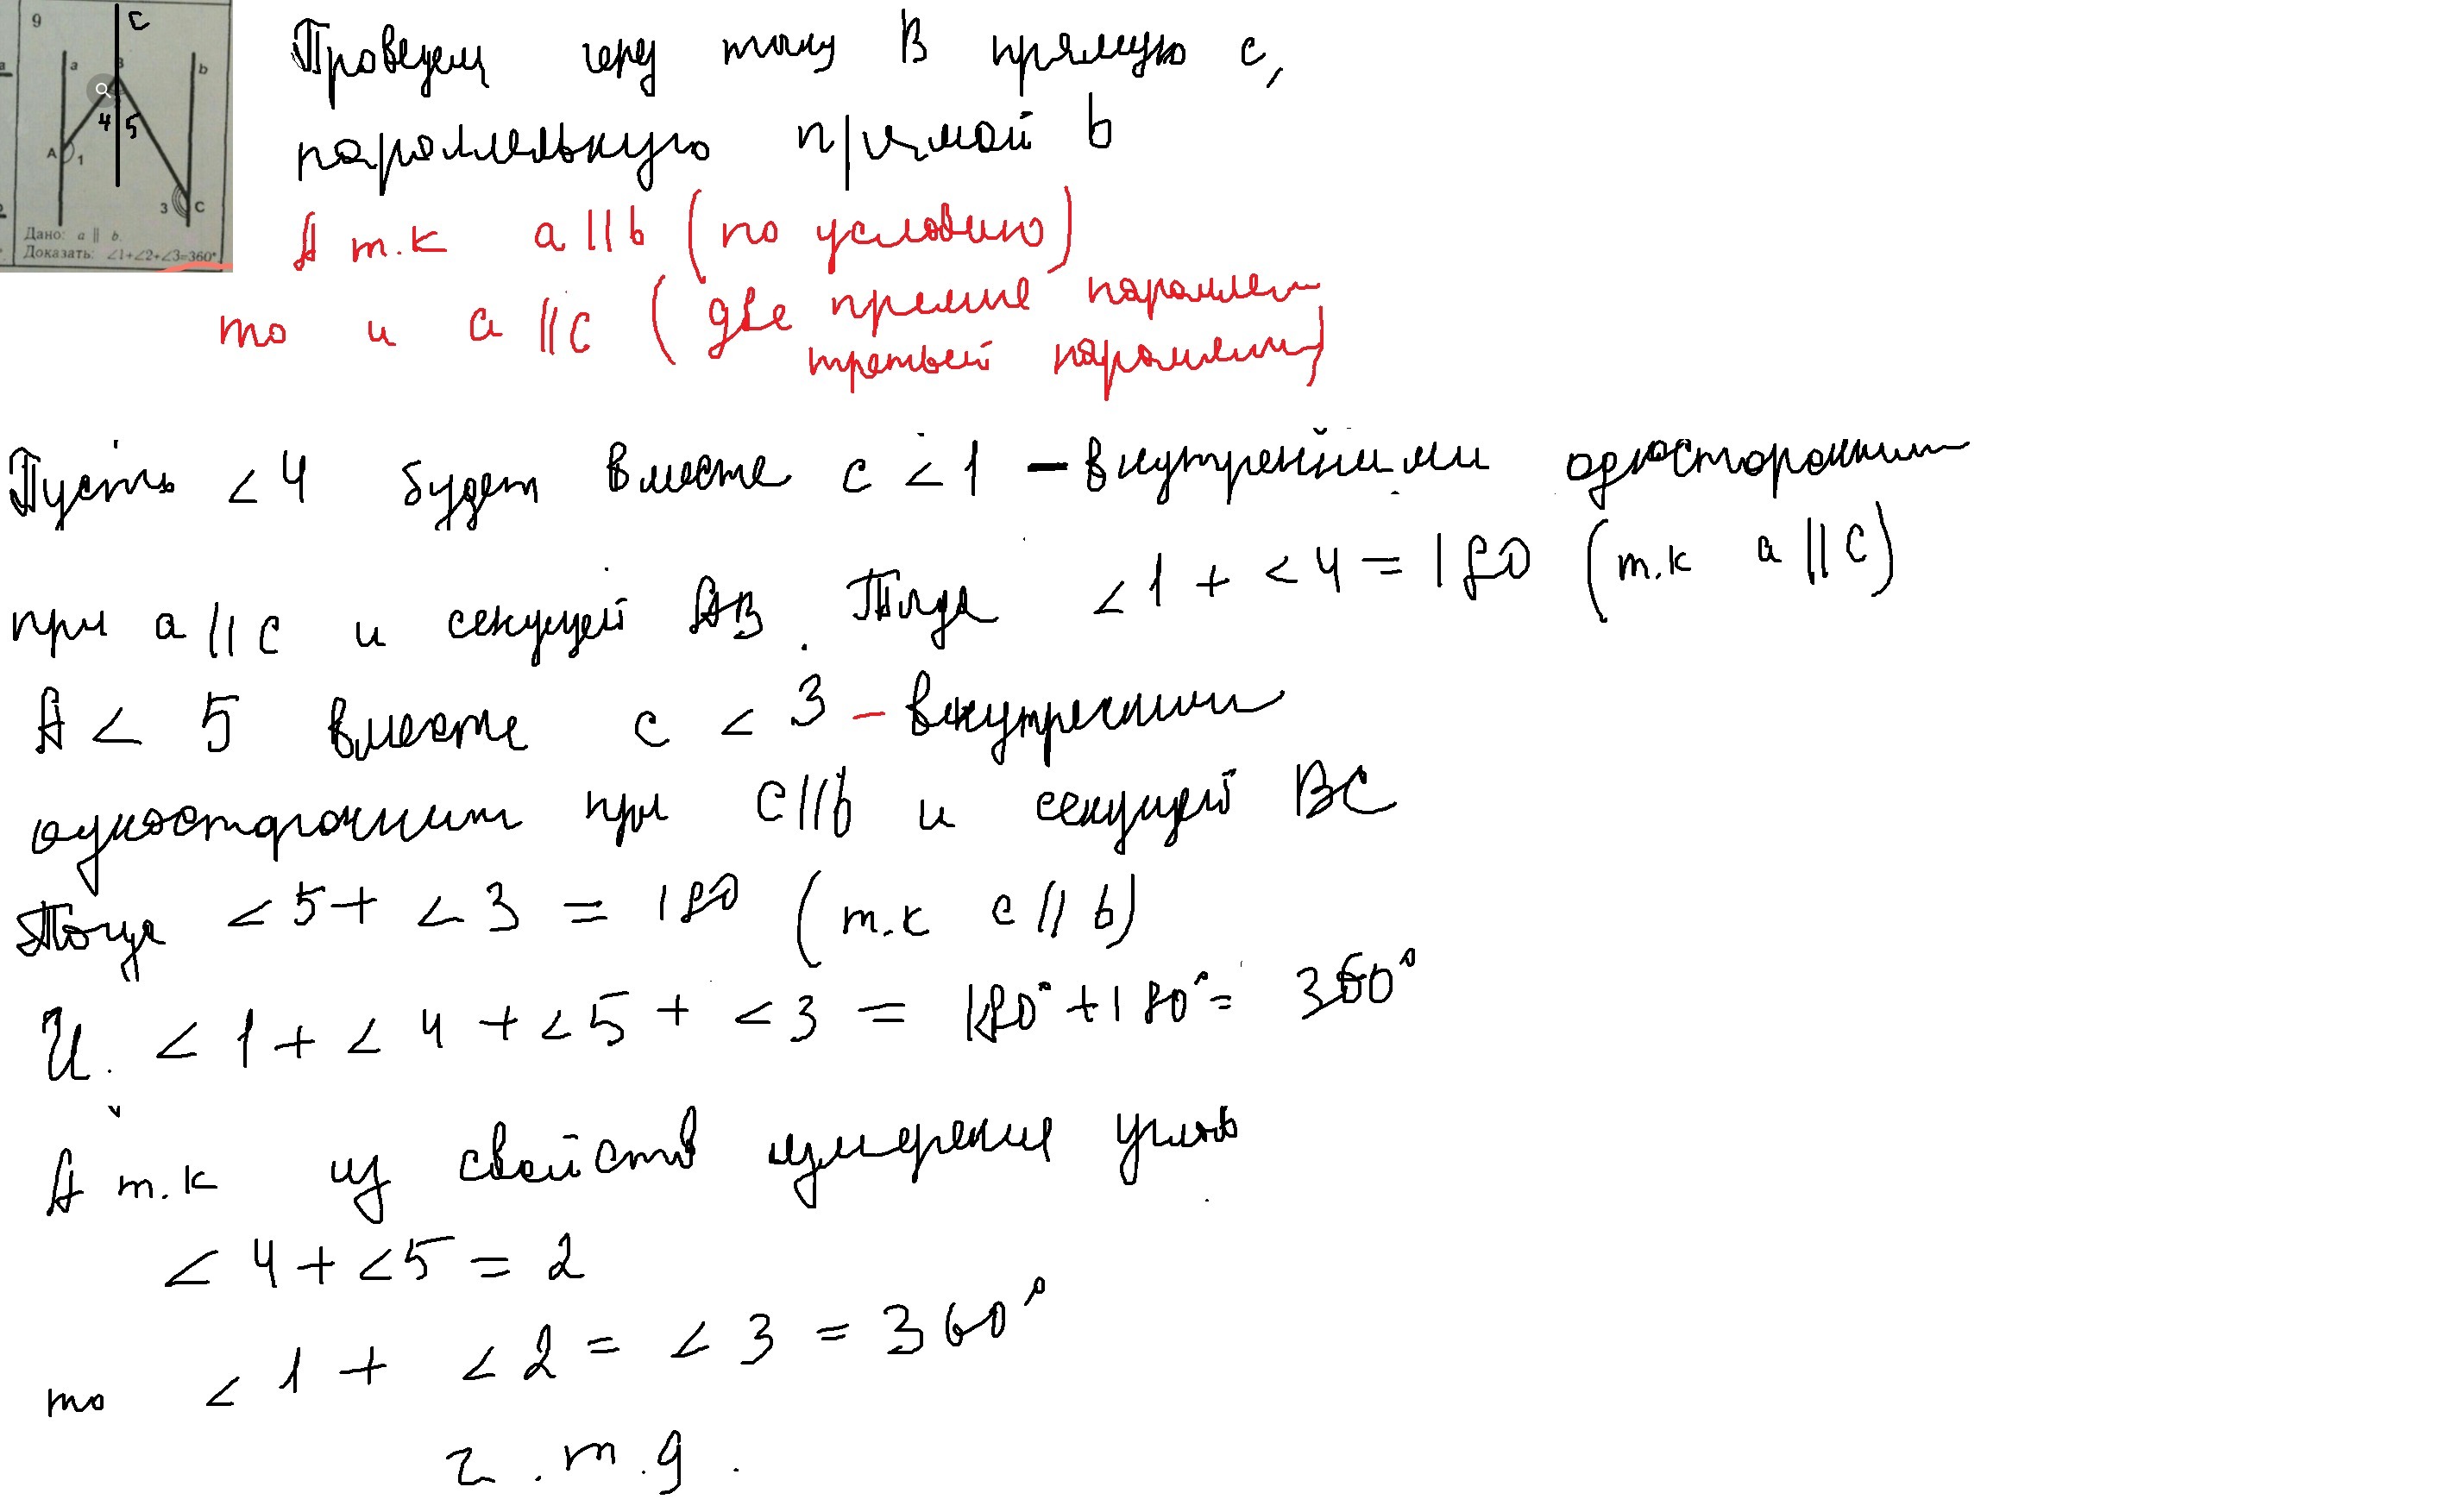 9
с
a
B
b
4
5
A
1
3
C
Дано: a || b.
Доказать: ∠1+∠2+∠3=360°
Проведем через точку B прямую c,
параллельную прямой b
А т.к a||b (по условию)
то и a||c (две прямые параллел
третьей параллельны)
Пусть ∠4 будет вместе с ∠1 - внутренними односторонними
при a||c и секущей AB. Тогда ∠1 + ∠4 = 180 (т.к a||c)
А ∠5 вместе с ∠3 - внутренними
односторонними при c||b и секущей BC
Тогда ∠5 + ∠3 = 180 (т.к c||b)
И. ∠1 + ∠4 + ∠5 + ∠3 = 180° + 180° = 360°
А т.к из свойств измерения углов
∠4 + ∠5 = 2
то ∠1 + ∠2 = ∠3 = 360°
ч.т.д.